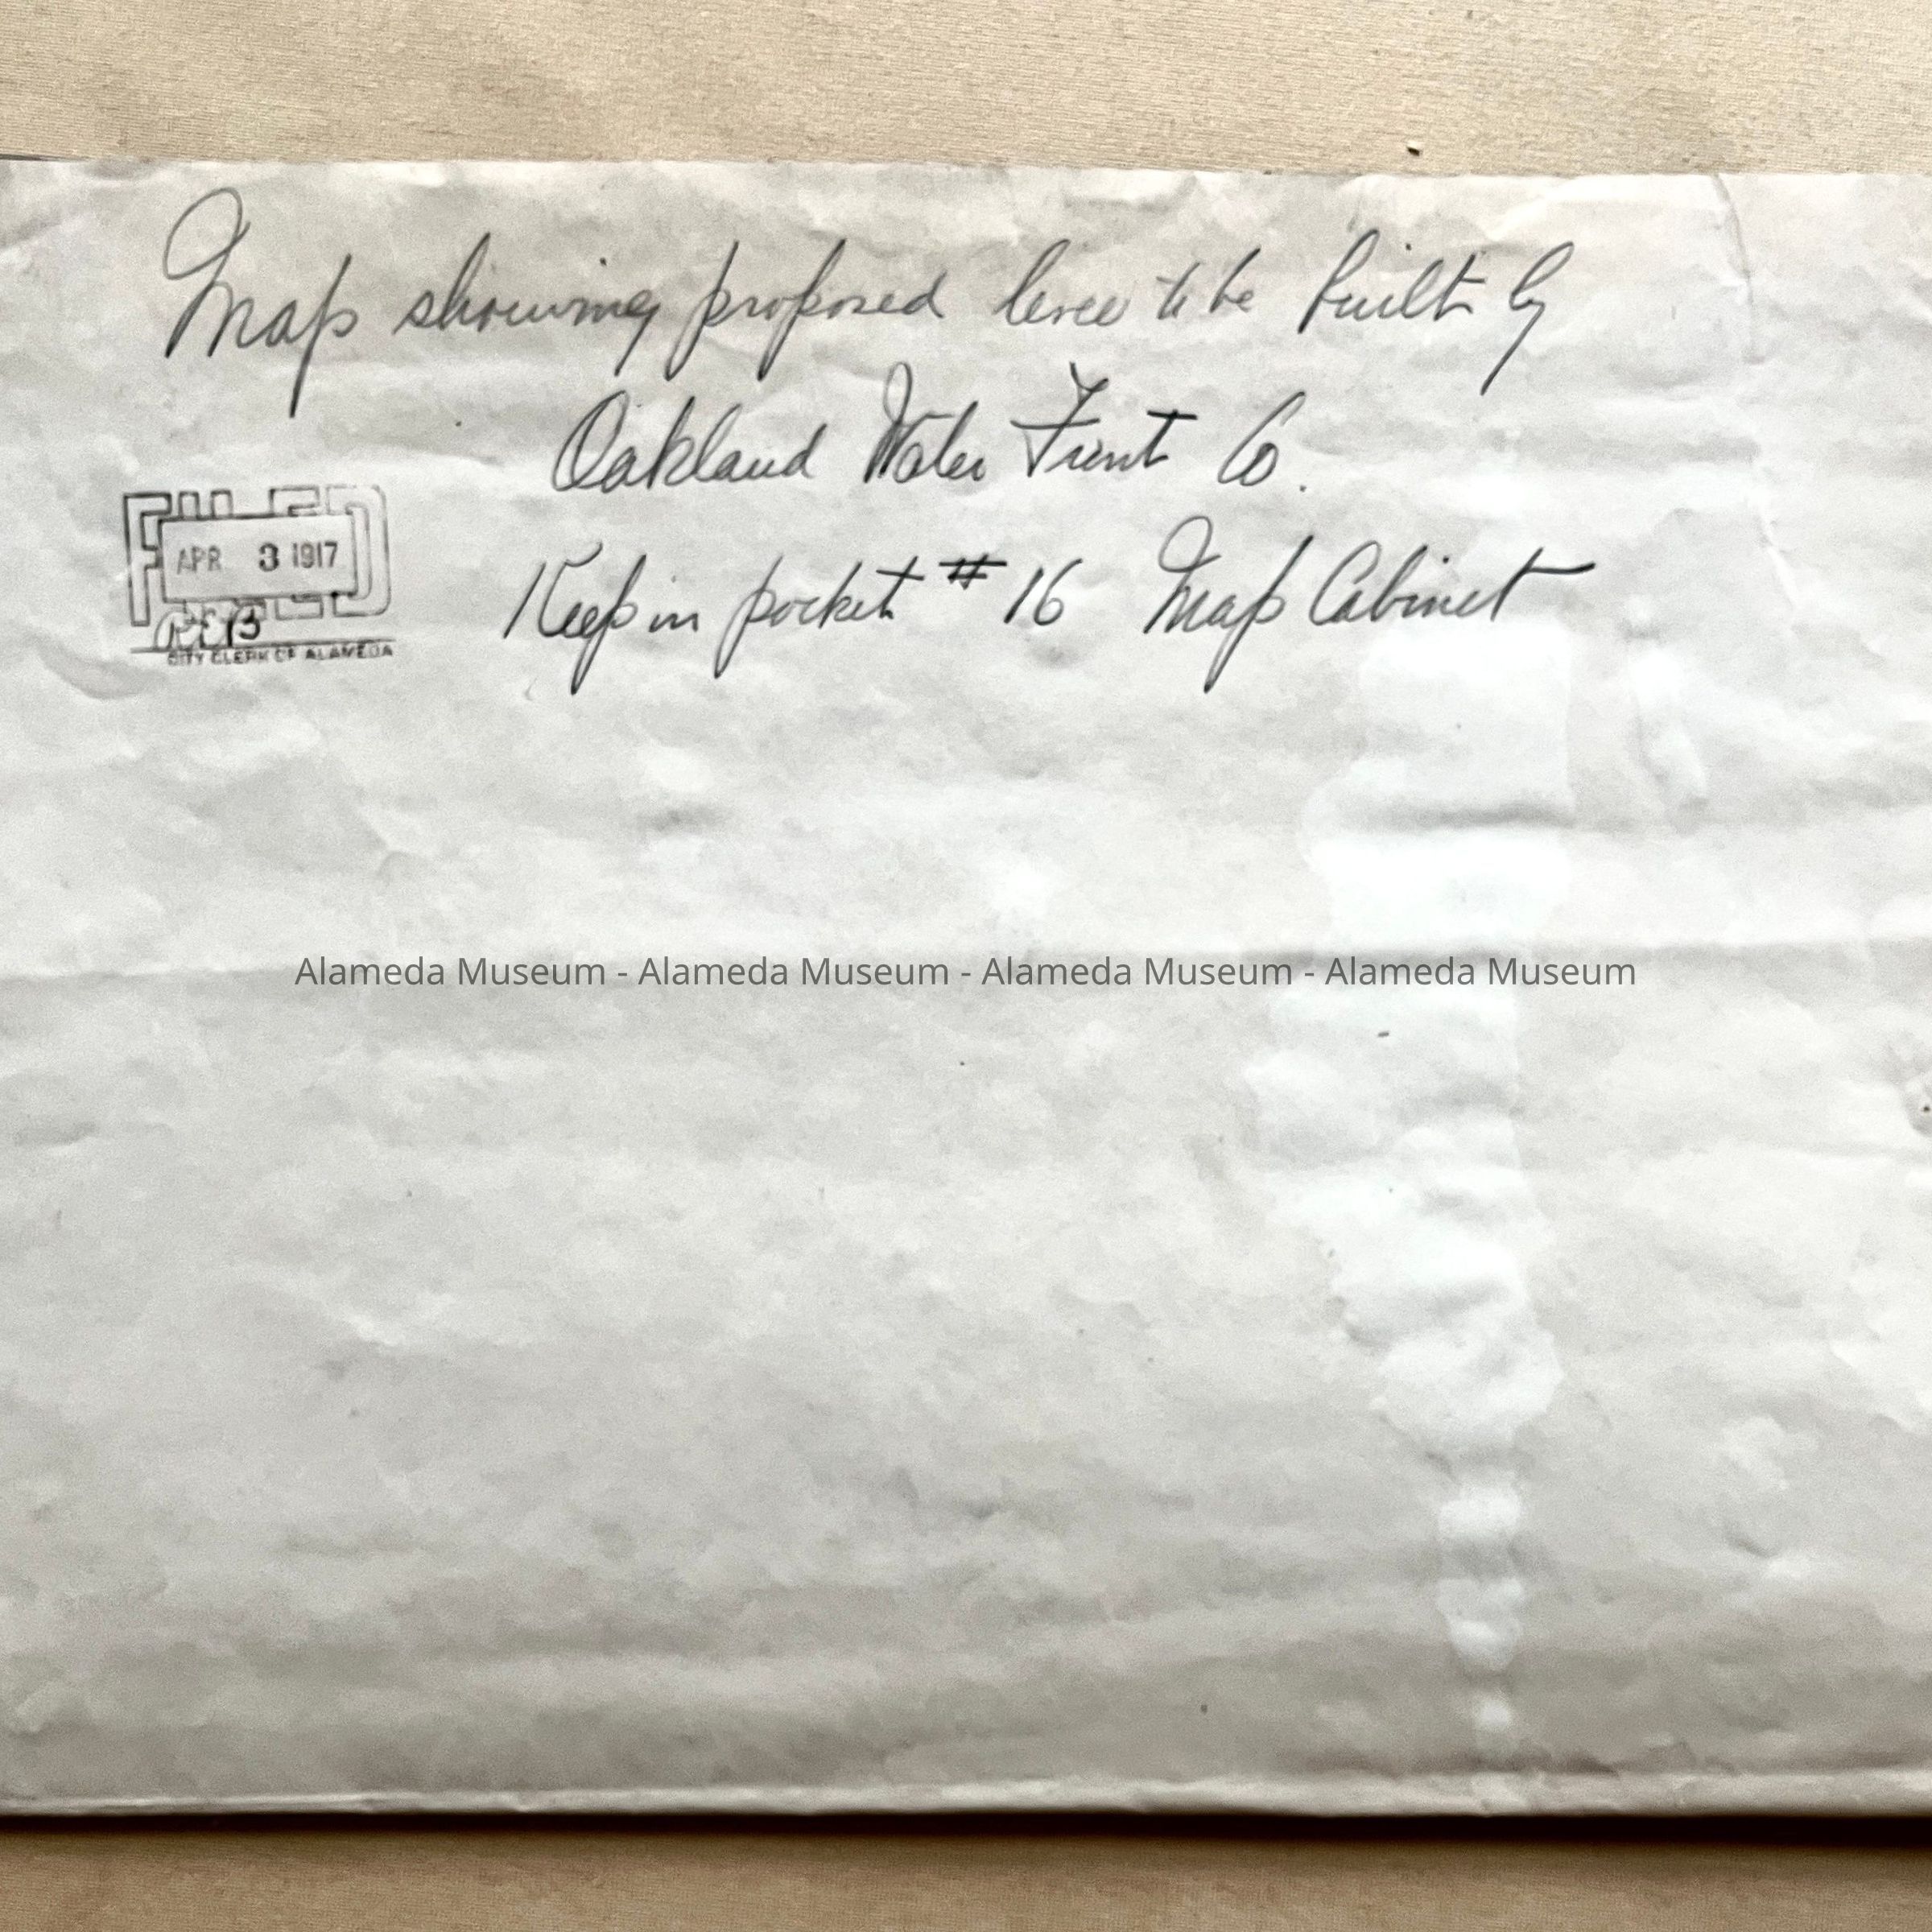 Map showing proposed levee to be built by
Oakland Water Front Co.
FILED
APR 3 1917
CITY CLERK OF ALAMEDA
Keep in pocket # 16 Map Cabinet
Alameda Museum - Alameda Museum - Alameda Museum - Alameda Museum